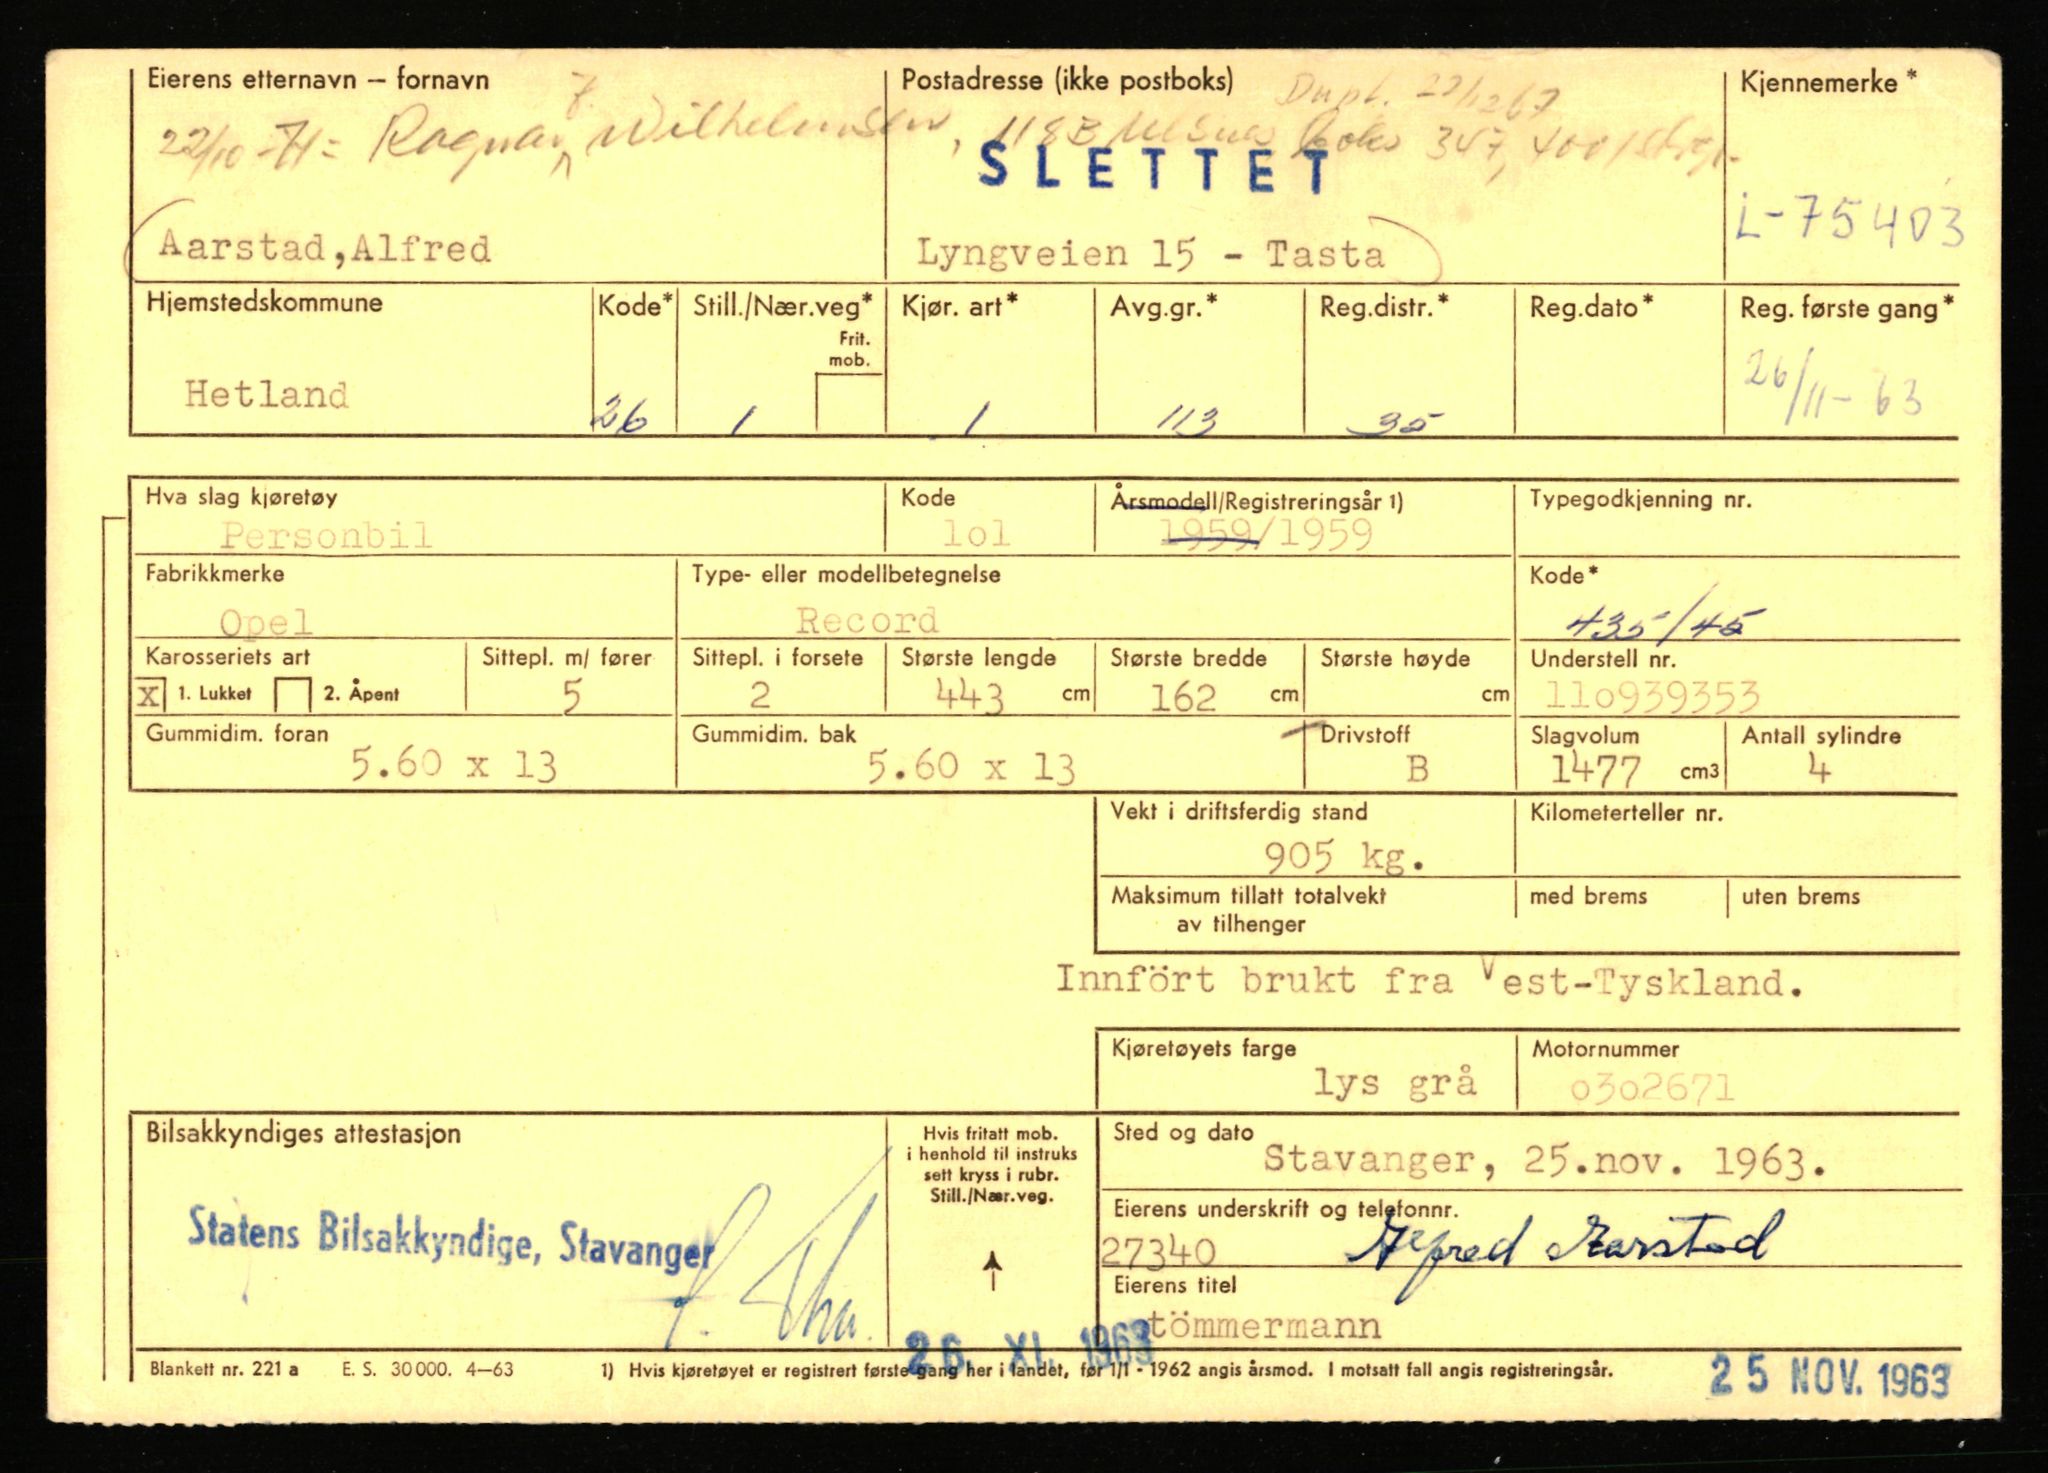 Eierens etternavn – fornavn
Postadresse (ikke postboks)
Kjennemerke *
Dupl. 22/12 67
22/10-71= Ragnar F. Wilhelmsen, boks 347, 4001
SLETTET
L-75403
Aarstad,Alfred
Lyngveien 15 - Tasta
Hjemstedskommune
Kode*
Still./Nær.veg*
Kjør. art*
Avg.gr.*
Reg.distr.*
Reg.dato*
Reg. første gang*
Frit. mob.
Hetland
26
1
1
113
35
26/11-63
Hva slag kjøretøy
Kode
Årsmodell/Registreringsår 1)
Typegodkjenning nr.
Personbil
lol
1959/1959
Fabrikkmerke
Type- eller modellbetegnelse
Kode*
Opel
Record
435/45
Karosseriets art
Sittepl. m/ fører
Sittepl. i forsete
Største lengde
Største bredde
Største høyde
Understell nr.
X 1. Lukket
2. Åpent
5
2
443 cm
162 cm
cm
11o939353
Gummidim. foran
Gummidim. bak
Drivstoff
Slagvolum
Antall sylindre
5.60 x 13
5.60 x 13
B
1477 cm3
4
Vekt i driftsferdig stand
Kilometerteller nr.
905 kg.
Maksimum tillatt totalvekt
av tilhenger
med brems
uten brems
Innfört brukt fra Vest-Tyskland.
Kjøretøyets farge
Motornummer
lys grå
o3o2671
Bilsakkyndiges attestasjon
Hvis fritatt mob.
i henhold til instruks
sett kryss i rubr.
Still./Nær.veg.
Sted og dato
Stavanger, 25.nov. 1963.
Statens Bilsakkyndige, Stavanger
Eierens underskrift og telefonnr.
27340
Alfred Aarstad
Eierens titel
tömmermann
26. XI. 1963
Blankett nr. 221 a E. S. 30 000. 4–63
1) Hvis kjøretøyet er registrert første gang her i landet, før 1/1 - 1962 angis årsmod. I motsatt fall angis registreringsår.
25 NOV. 1963